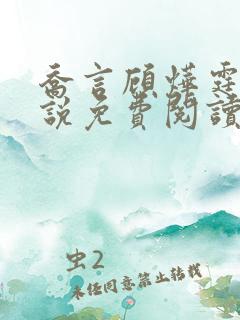 乔言顾烨霆
說免費閱讀
虫2
未经同意禁止转载